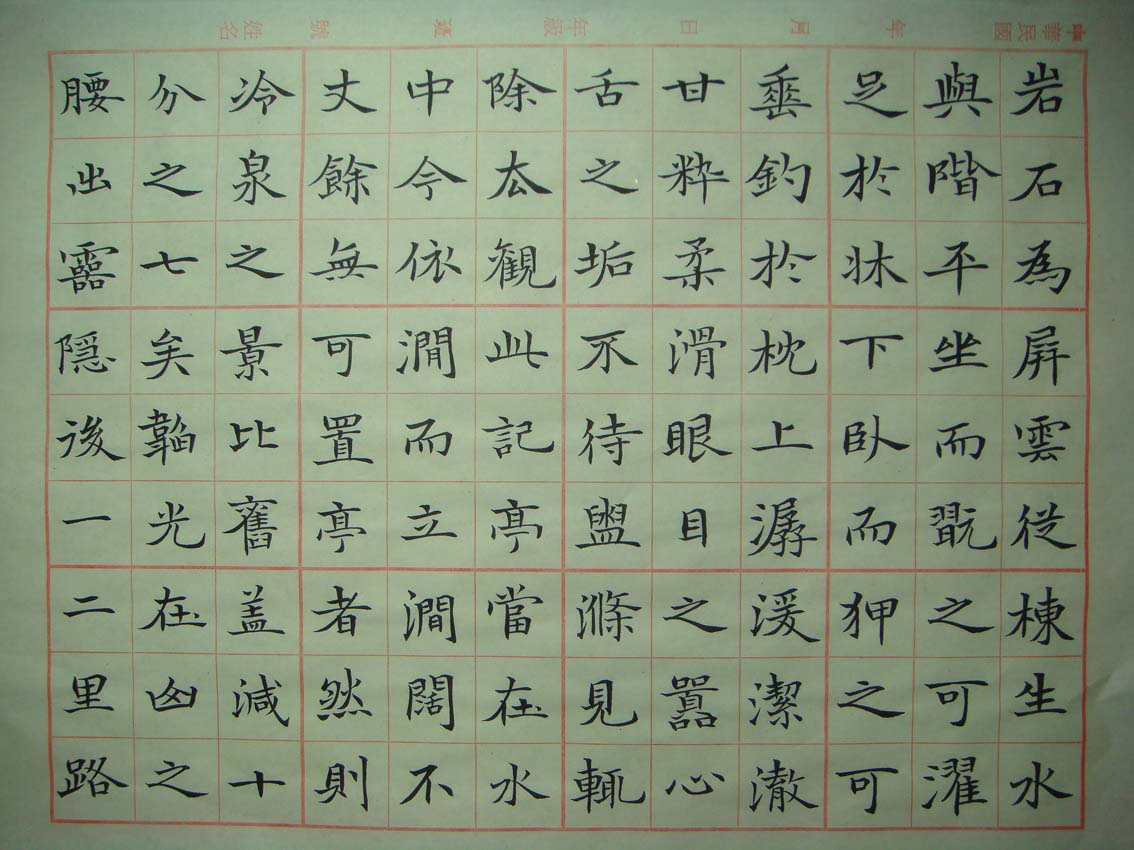 中華民國 年 月 日 年級 號 姓名
岩石為屏雲從棟生水
與階平坐而翫之可濯
足於牀下卧而狎之可
垂釣於枕上潺湲潔澈
甘粹柔滑眼目之囂心
舌之垢不待盥滌見輒
除去觀此記亭當在水
中今依澗而立澗闊不
丈餘無可置亭者然則
冷泉之景比舊盖減十
分之七矣韜光在山之
腰出靈隱後一二里路